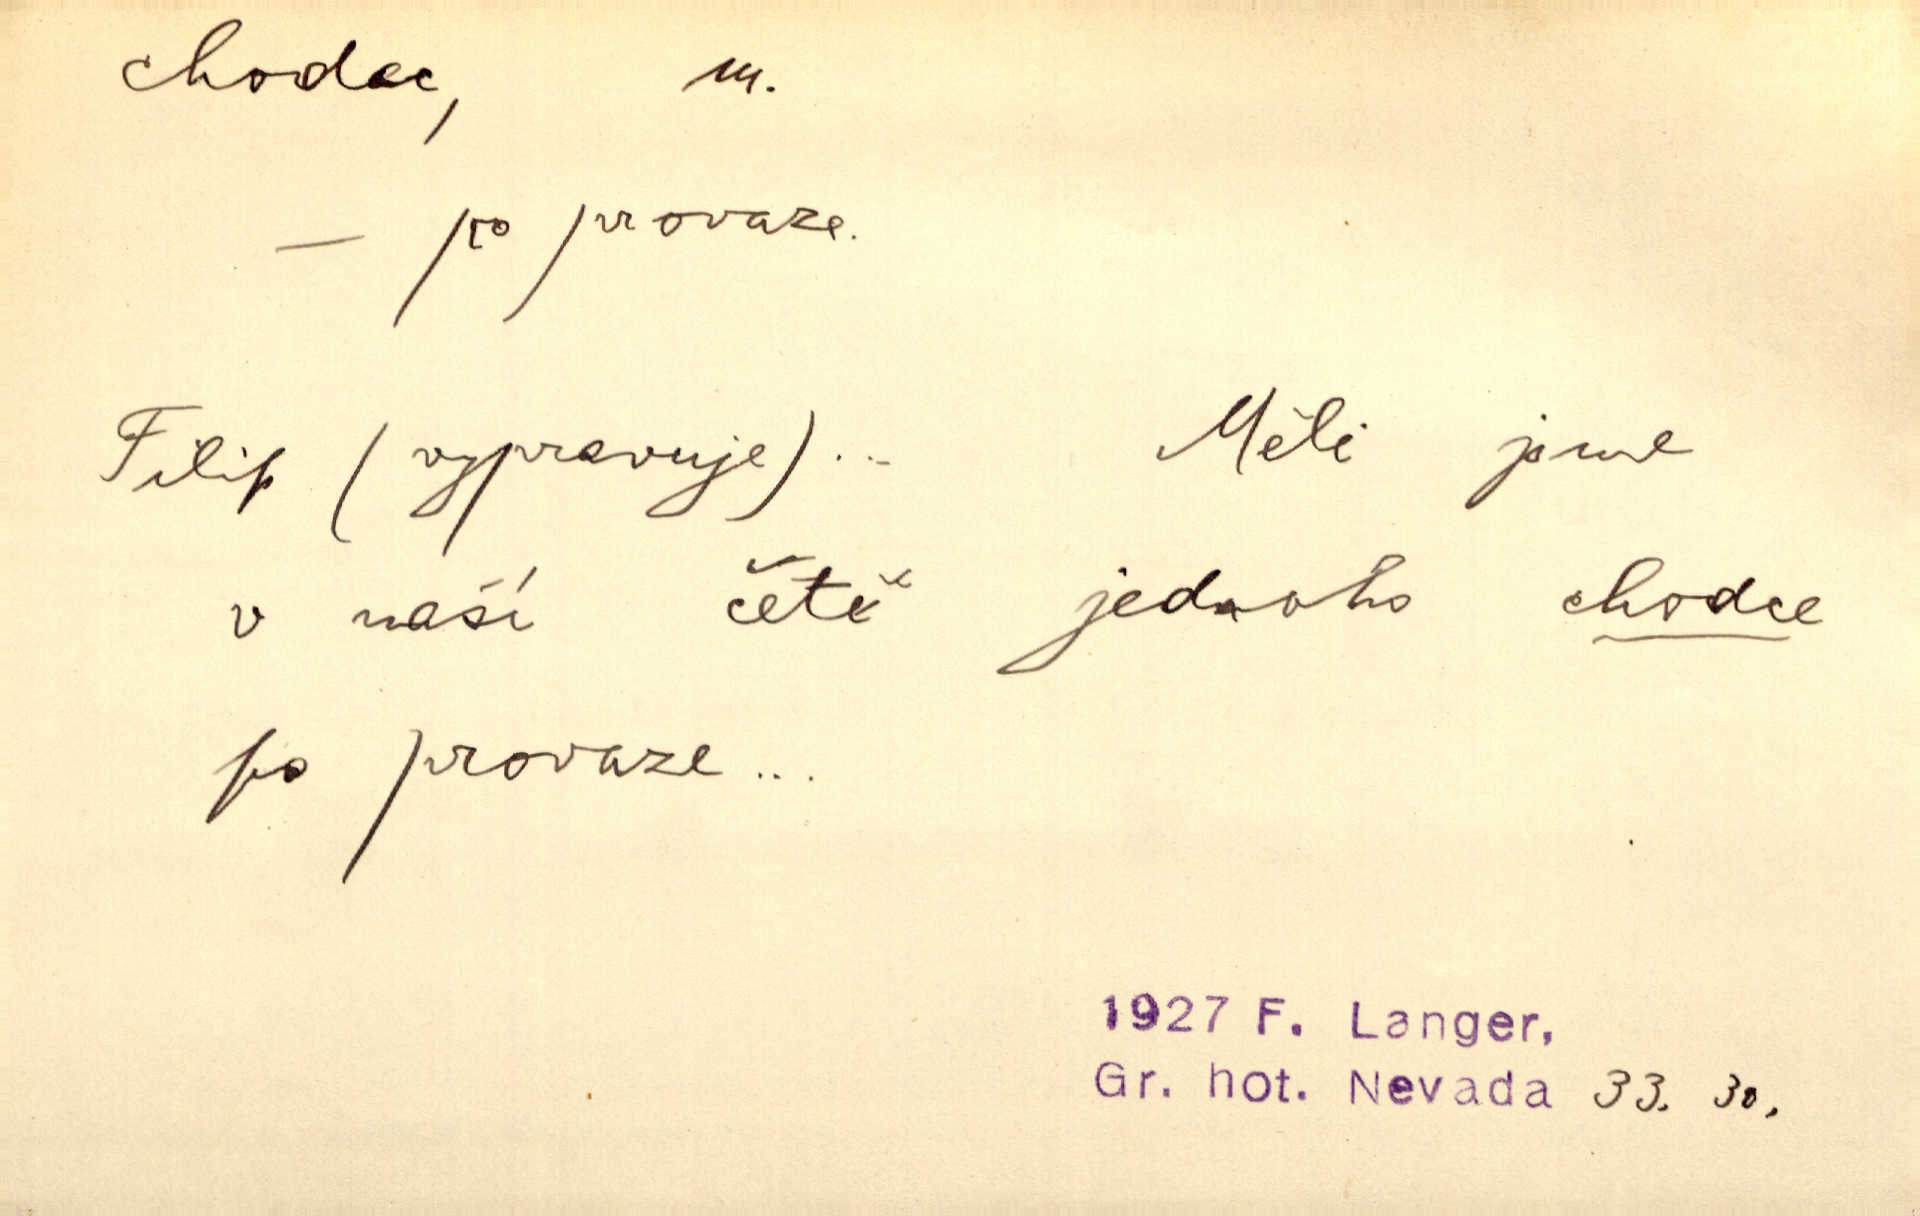 chodec, m.
— po provaze.
Filip (vypravuje)... Měli jsme
v naší četě jednoho chodce
po provaze...
1927 F. Langer,
Gr. hot. Nevada 33. 30.